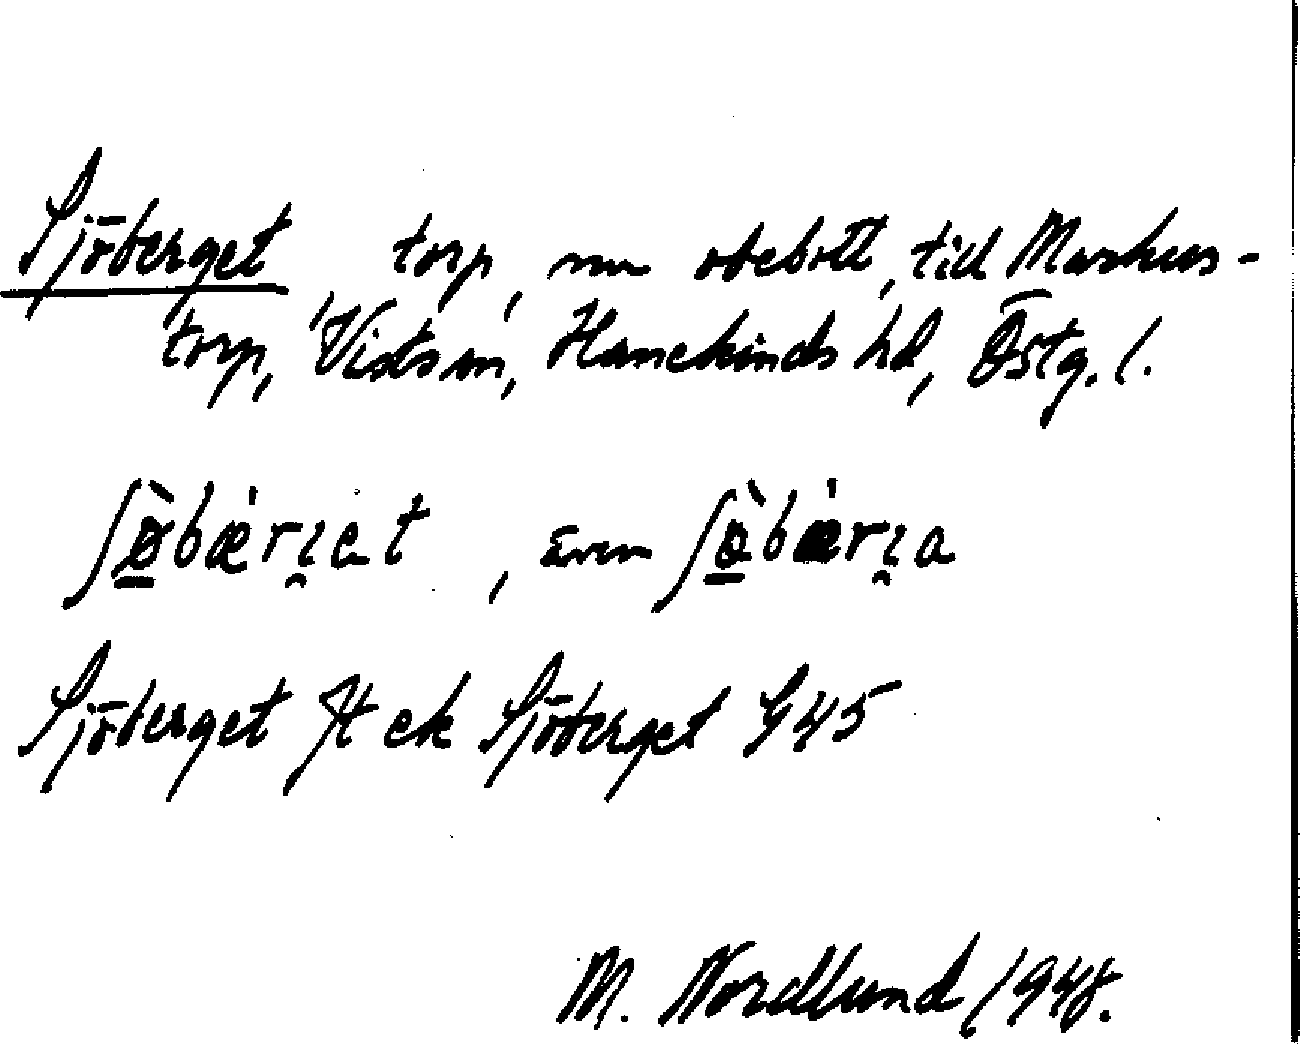 Sjöberget torp, nu obebott, till Markus-
torp, Vists sn, Hanekinds hd, Östg. l.
ʃø̱̀bæ̍ri̯et, även ʃø̱̀bæ̍ri̯a
Sjöberget Jt ek Sjöberget G45
M. Nordlund 1948.